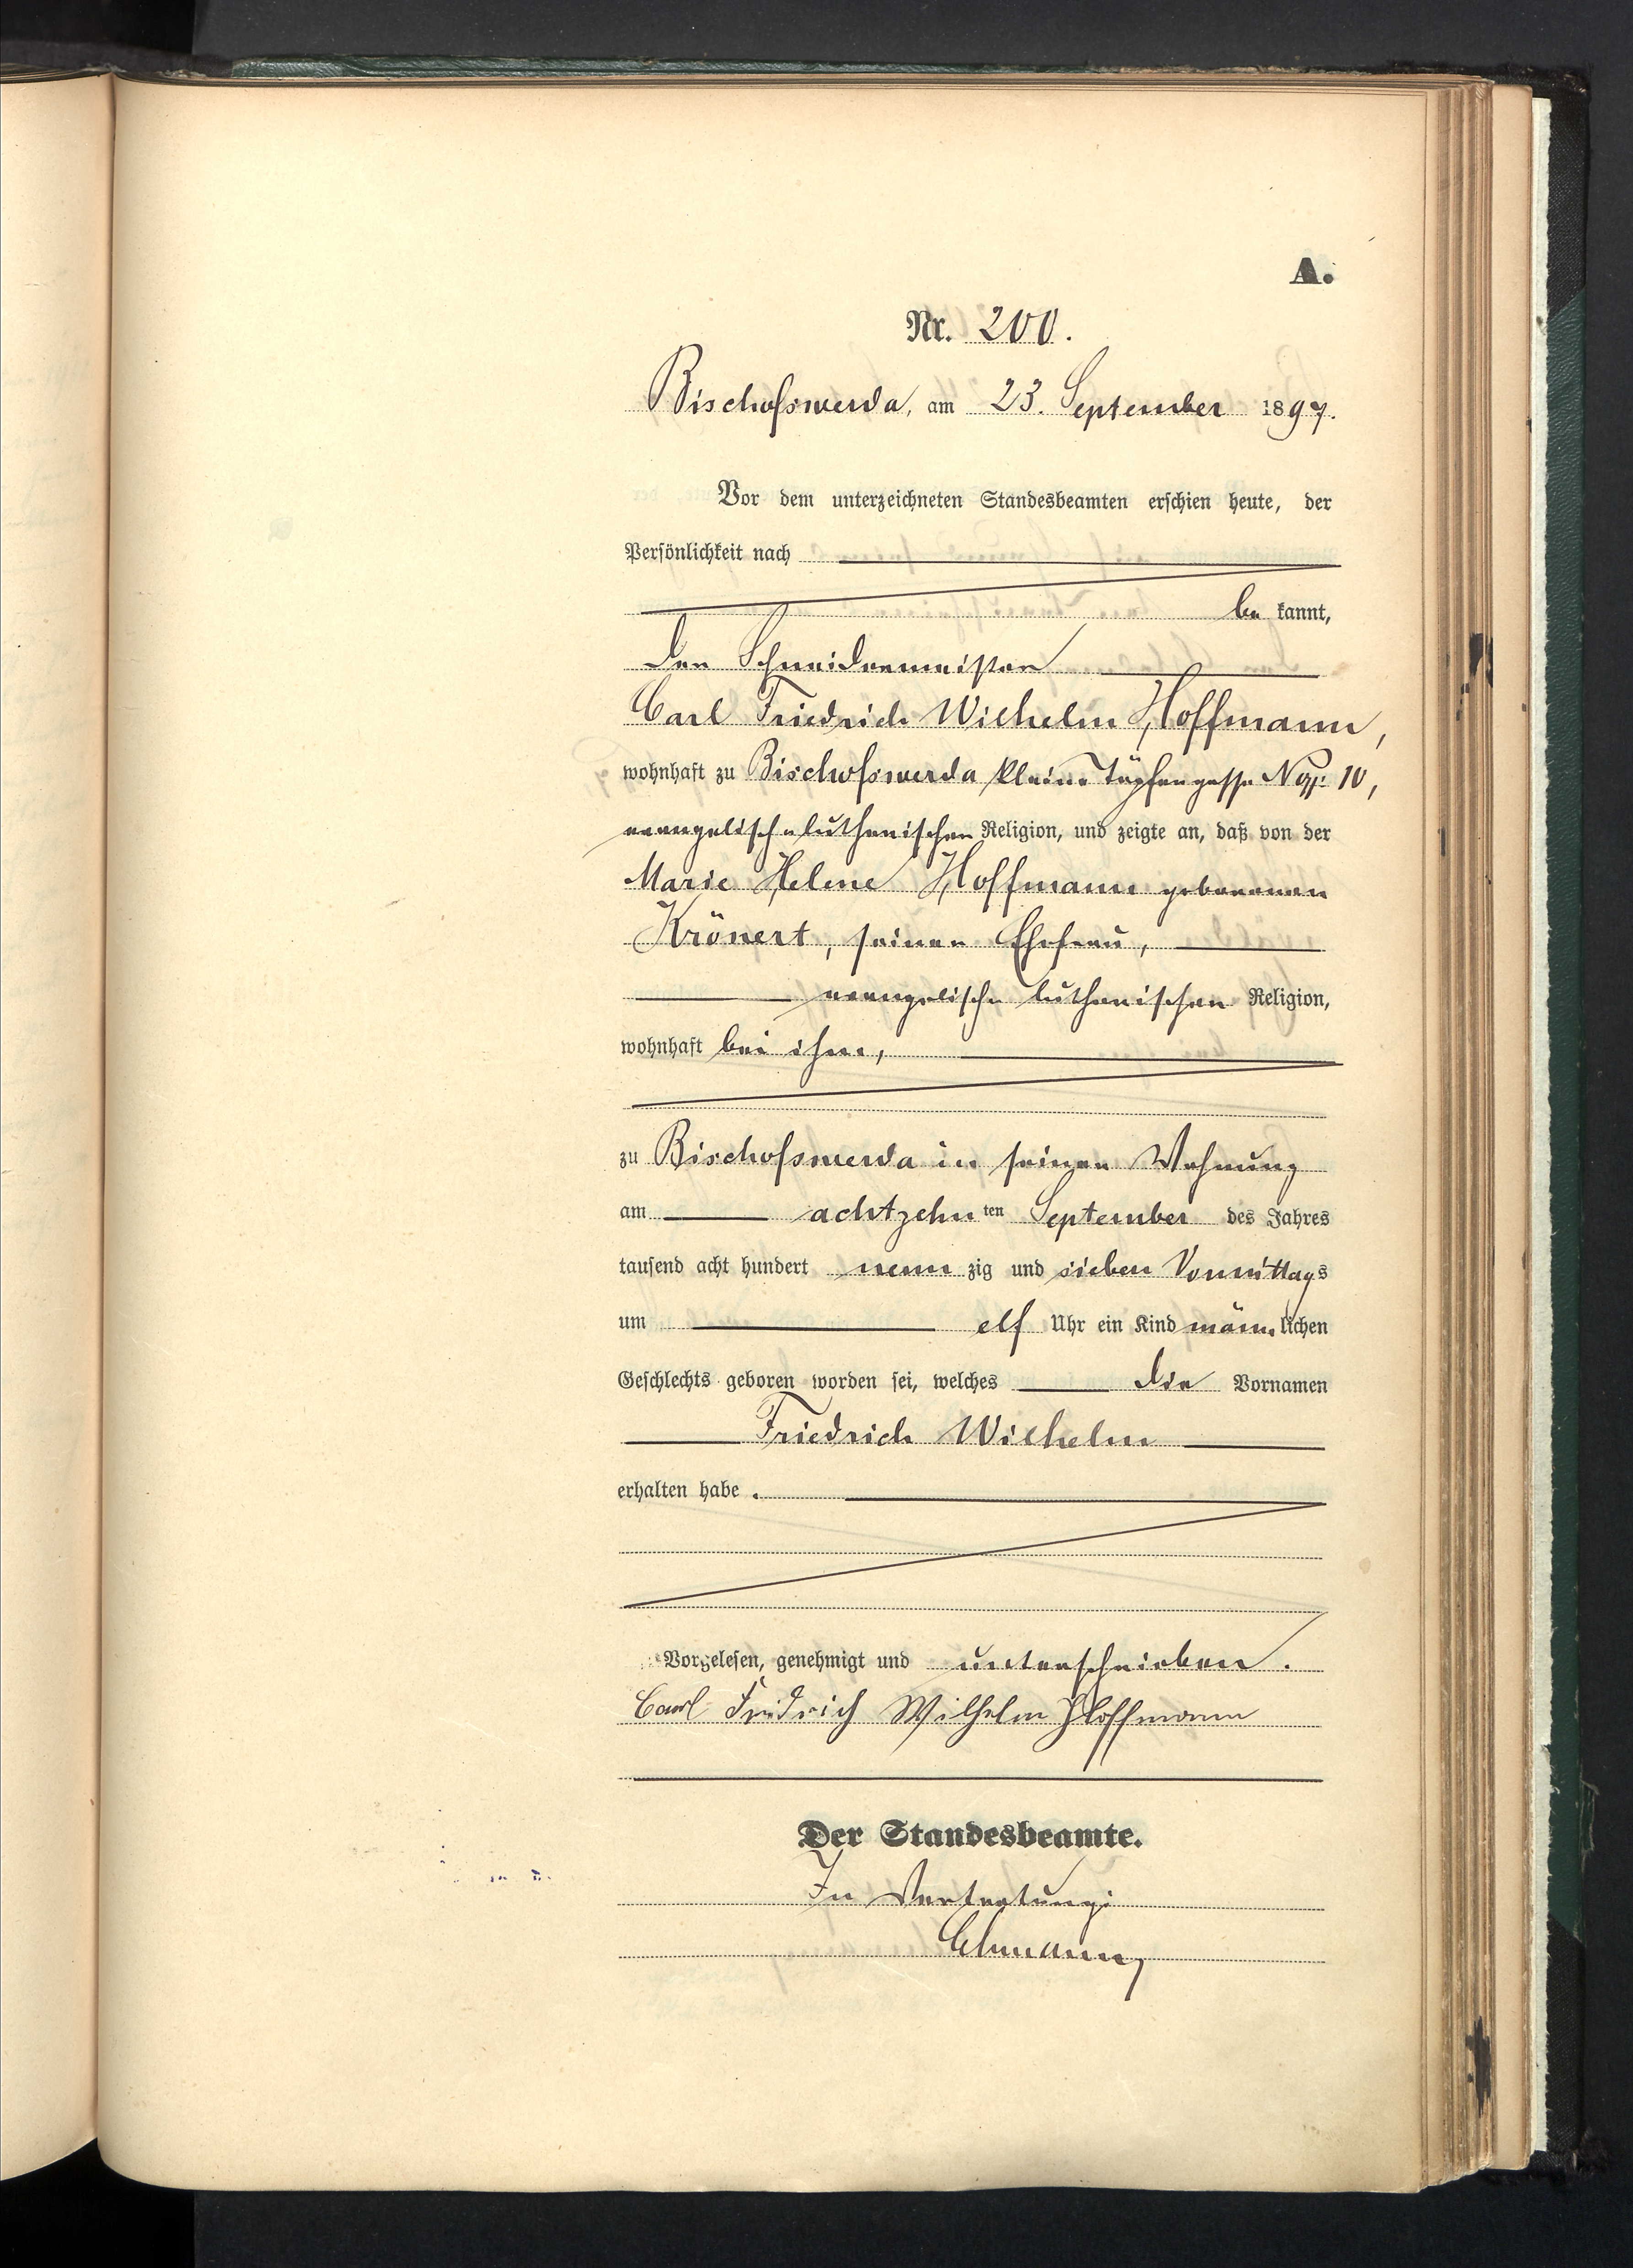 A.
Nr. 200.
Bischofswerda, am 23. September 1897.
Vor dem unterzeichneten Standesbeamten erschien heute, der
Persönlichkeit nach
be kannt,
der Schneidermeister
Carl Friedrich Wilhelm Hoffmann,
wohnhaft zu Bischofswerda kleine Töpfergasse 10,
evangelisch-lutherischer Religion, und zeigte an, daß von der
Marie Helene Hoffmann geborenen
Krönert, seiner Ehefrau,
evangelisch-lutherischer Religion,
wohnhaft bei ihm,
zu Bischofswerda in seiner Wohnung
am achtzehn ten September des Jahres
tausend acht hundert neun zig und sieben Vormittags
um elf Uhr ein Kind männlichen
Geschlechts geboren worden sei, welches die Vornamen
Friedrich Wilhelm
erhalten habe.
Vorgelesen, genehmigt und unterschrieben.
Carl Friedrich Wilhelm Hoffmann
Der Standesbeamte.
In Vertretung: